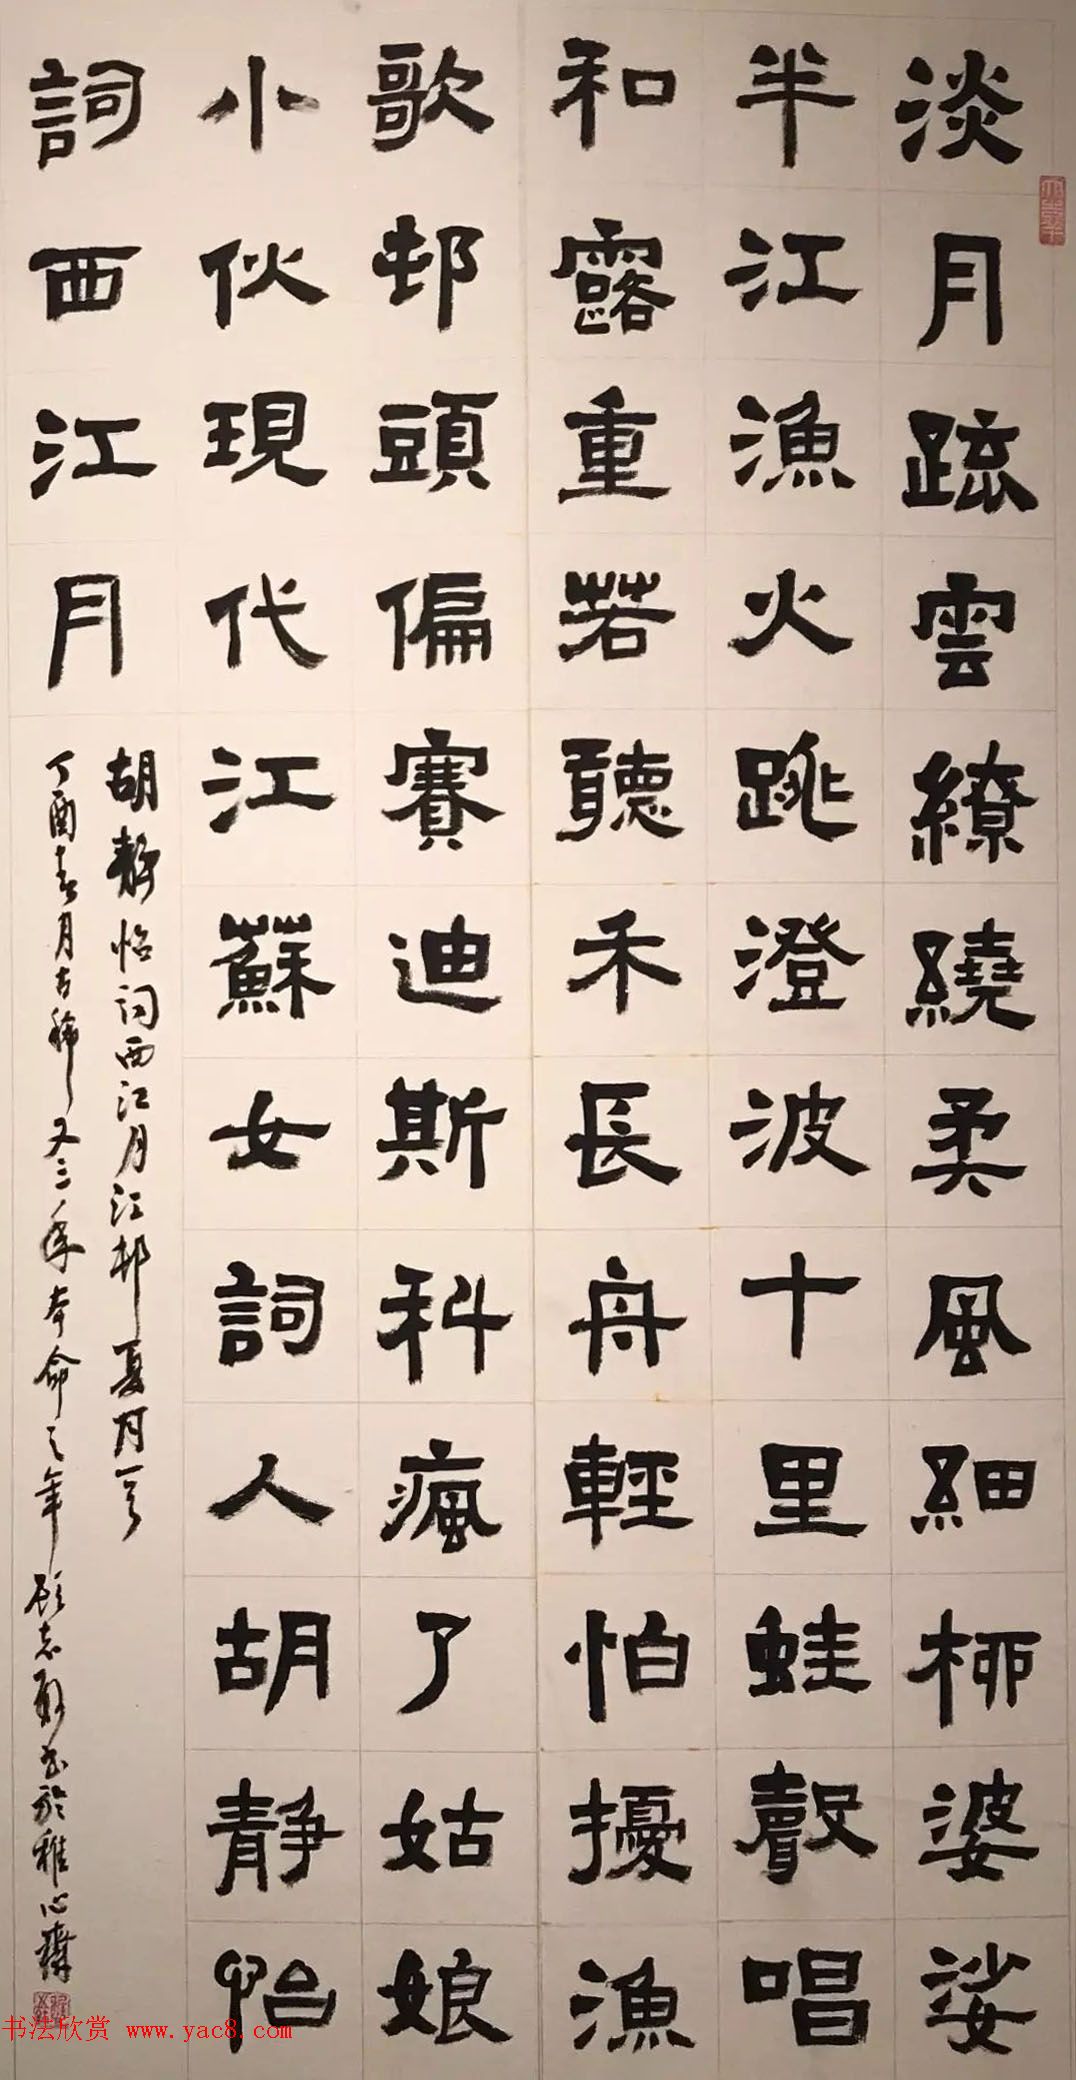 淡月疏雲繚繞柔風細栁婆娑
半江漁火跳澄波十里蛙聲唱
和露重若聽禾長舟輕怕擾漁
歌邨頭偏賽迪斯科瘋了姑娘
小伙現代江蘇女詞人胡靜怡
詞西江月
胡靜怡词西江月江邨夏月一
丁酉春月古稀又三年本命之年顾志新书於雅心齋
书法欣赏 www.yac8.com